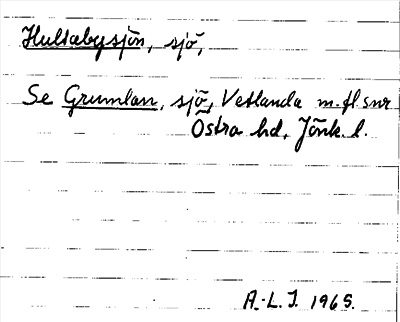 Hultabysjön, sjö,
Se Grumlan, sjö, Vetlanda m.fl snr
Östra hd, Jönk. l.
A.-L. J. 1965.